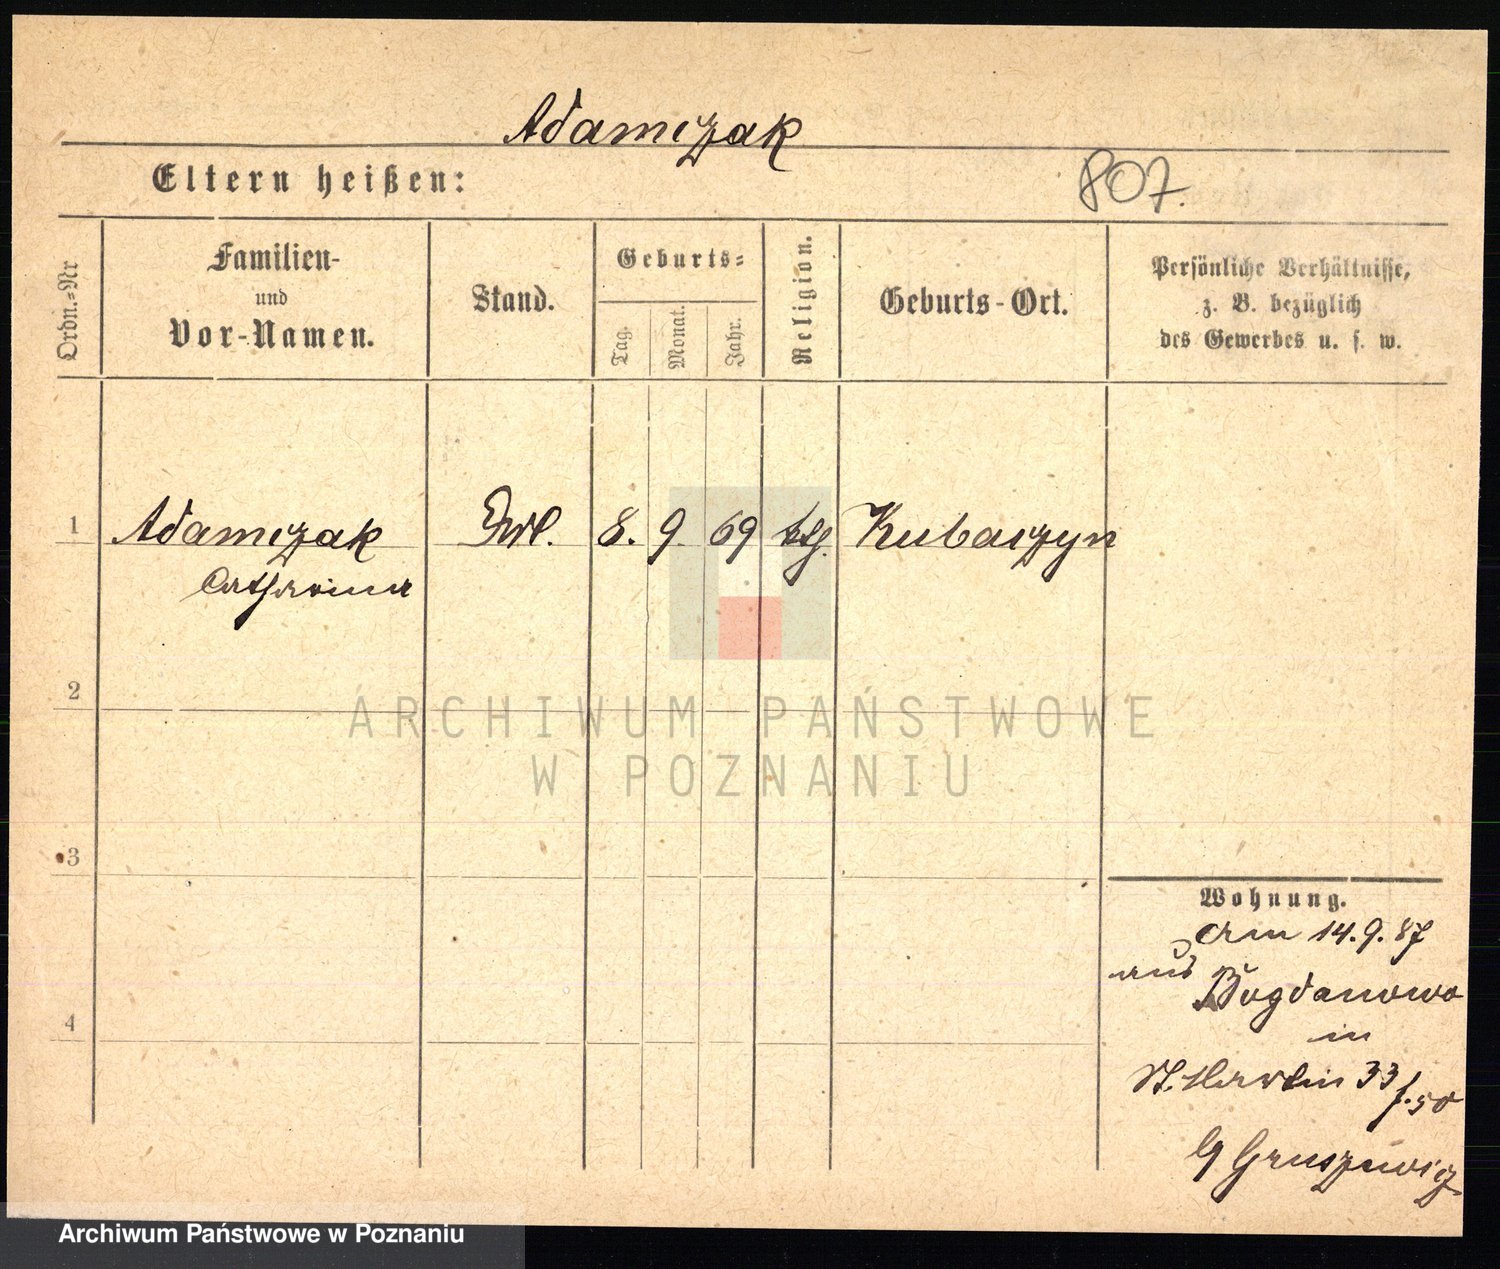 Adamczak
Eltern heißen:
807.
Ordn.=Nr
Familien-
und
Vor-Namen.
Stand.
Geburts=
Tag.
Monat.
Jahr.
Religion.
Geburts-Ort.
Persönliche Verhältnisse,
z. B. bezüglich
des Gewerbes u. s. w.
1 Adamczak 8. 9. 69 ktg. Kubaczyn
Catharina
2
3
4
Wohnung.
Am 14. 9. 87
aus
Bogdanowo
in
St. Martin 33
b. Gruszewicz
ARCHIWUM PAŃSTWOWE
W POZNANIU
Archiwum Państwowe w Poznaniu